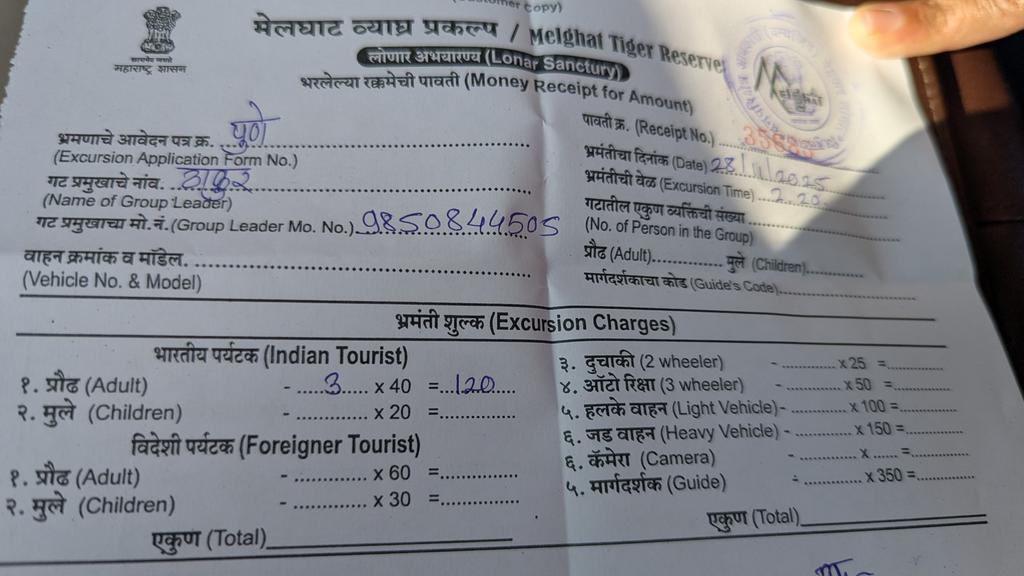 (Customer Copy)
महाराष्ट्र शासन
मेलघाट व्याघ्र प्रकल्प / Melghat Tiger Reserve
लोणार अभयारण्य (Lonar Sanctury)
भरलेल्या रक्कमेची पावती (Money Receipt for Amount)
भ्रमणाचे आवेदन पत्र क्र. पुणे
(Excursion Application Form No.)
गट प्रमुखाचे नांव. ठाकुर
(Name of Group Leader)
गट प्रमुखाचा मो.नं. (Group Leader Mo. No.) 9850844505
वाहन क्रमांक व मॉडेल
(Vehicle No. & Model)
पावती क्र. (Receipt No.)
भ्रमंतीचा दिनांक (Date) 28/11/2025
भ्रमंतीची वेळ (Excursion Time) 2.20
गटातील एकुण व्यक्तिची संख्या
(No. of Person in the Group)
प्रौढ (Adult)............... मुले (Children)............
मार्गदर्शकाचा कोड (Guide's Code)
भ्रमंती शुल्क (Excursion Charges)
भारतीय पर्यटक (Indian Tourist)
१. प्रौढ (Adult) - 3 x 40 = 120
२. मुले (Children) - ............ x 20 =............
विदेशी पर्यटक (Foreigner Tourist)
१. प्रौढ (Adult) - ............ x 60 =............
२. मुले (Children) - ............ x 30 =............
एकुण (Total)
३. दुचाकी (2 wheeler) - ............ x 25 =............
४. ऑटो रिक्षा (3 wheeler) - ............ x 50 =............
५. हलके वाहन (Light Vehicle) - ............ x 100 =............
६. जड वाहन (Heavy Vehicle) - ............ x 150 =............
६. कॅमेरा (Camera) - ............ x ...... =............
५. मार्गदर्शक (Guide) - ............ x 350 =............
एकुण (Total)